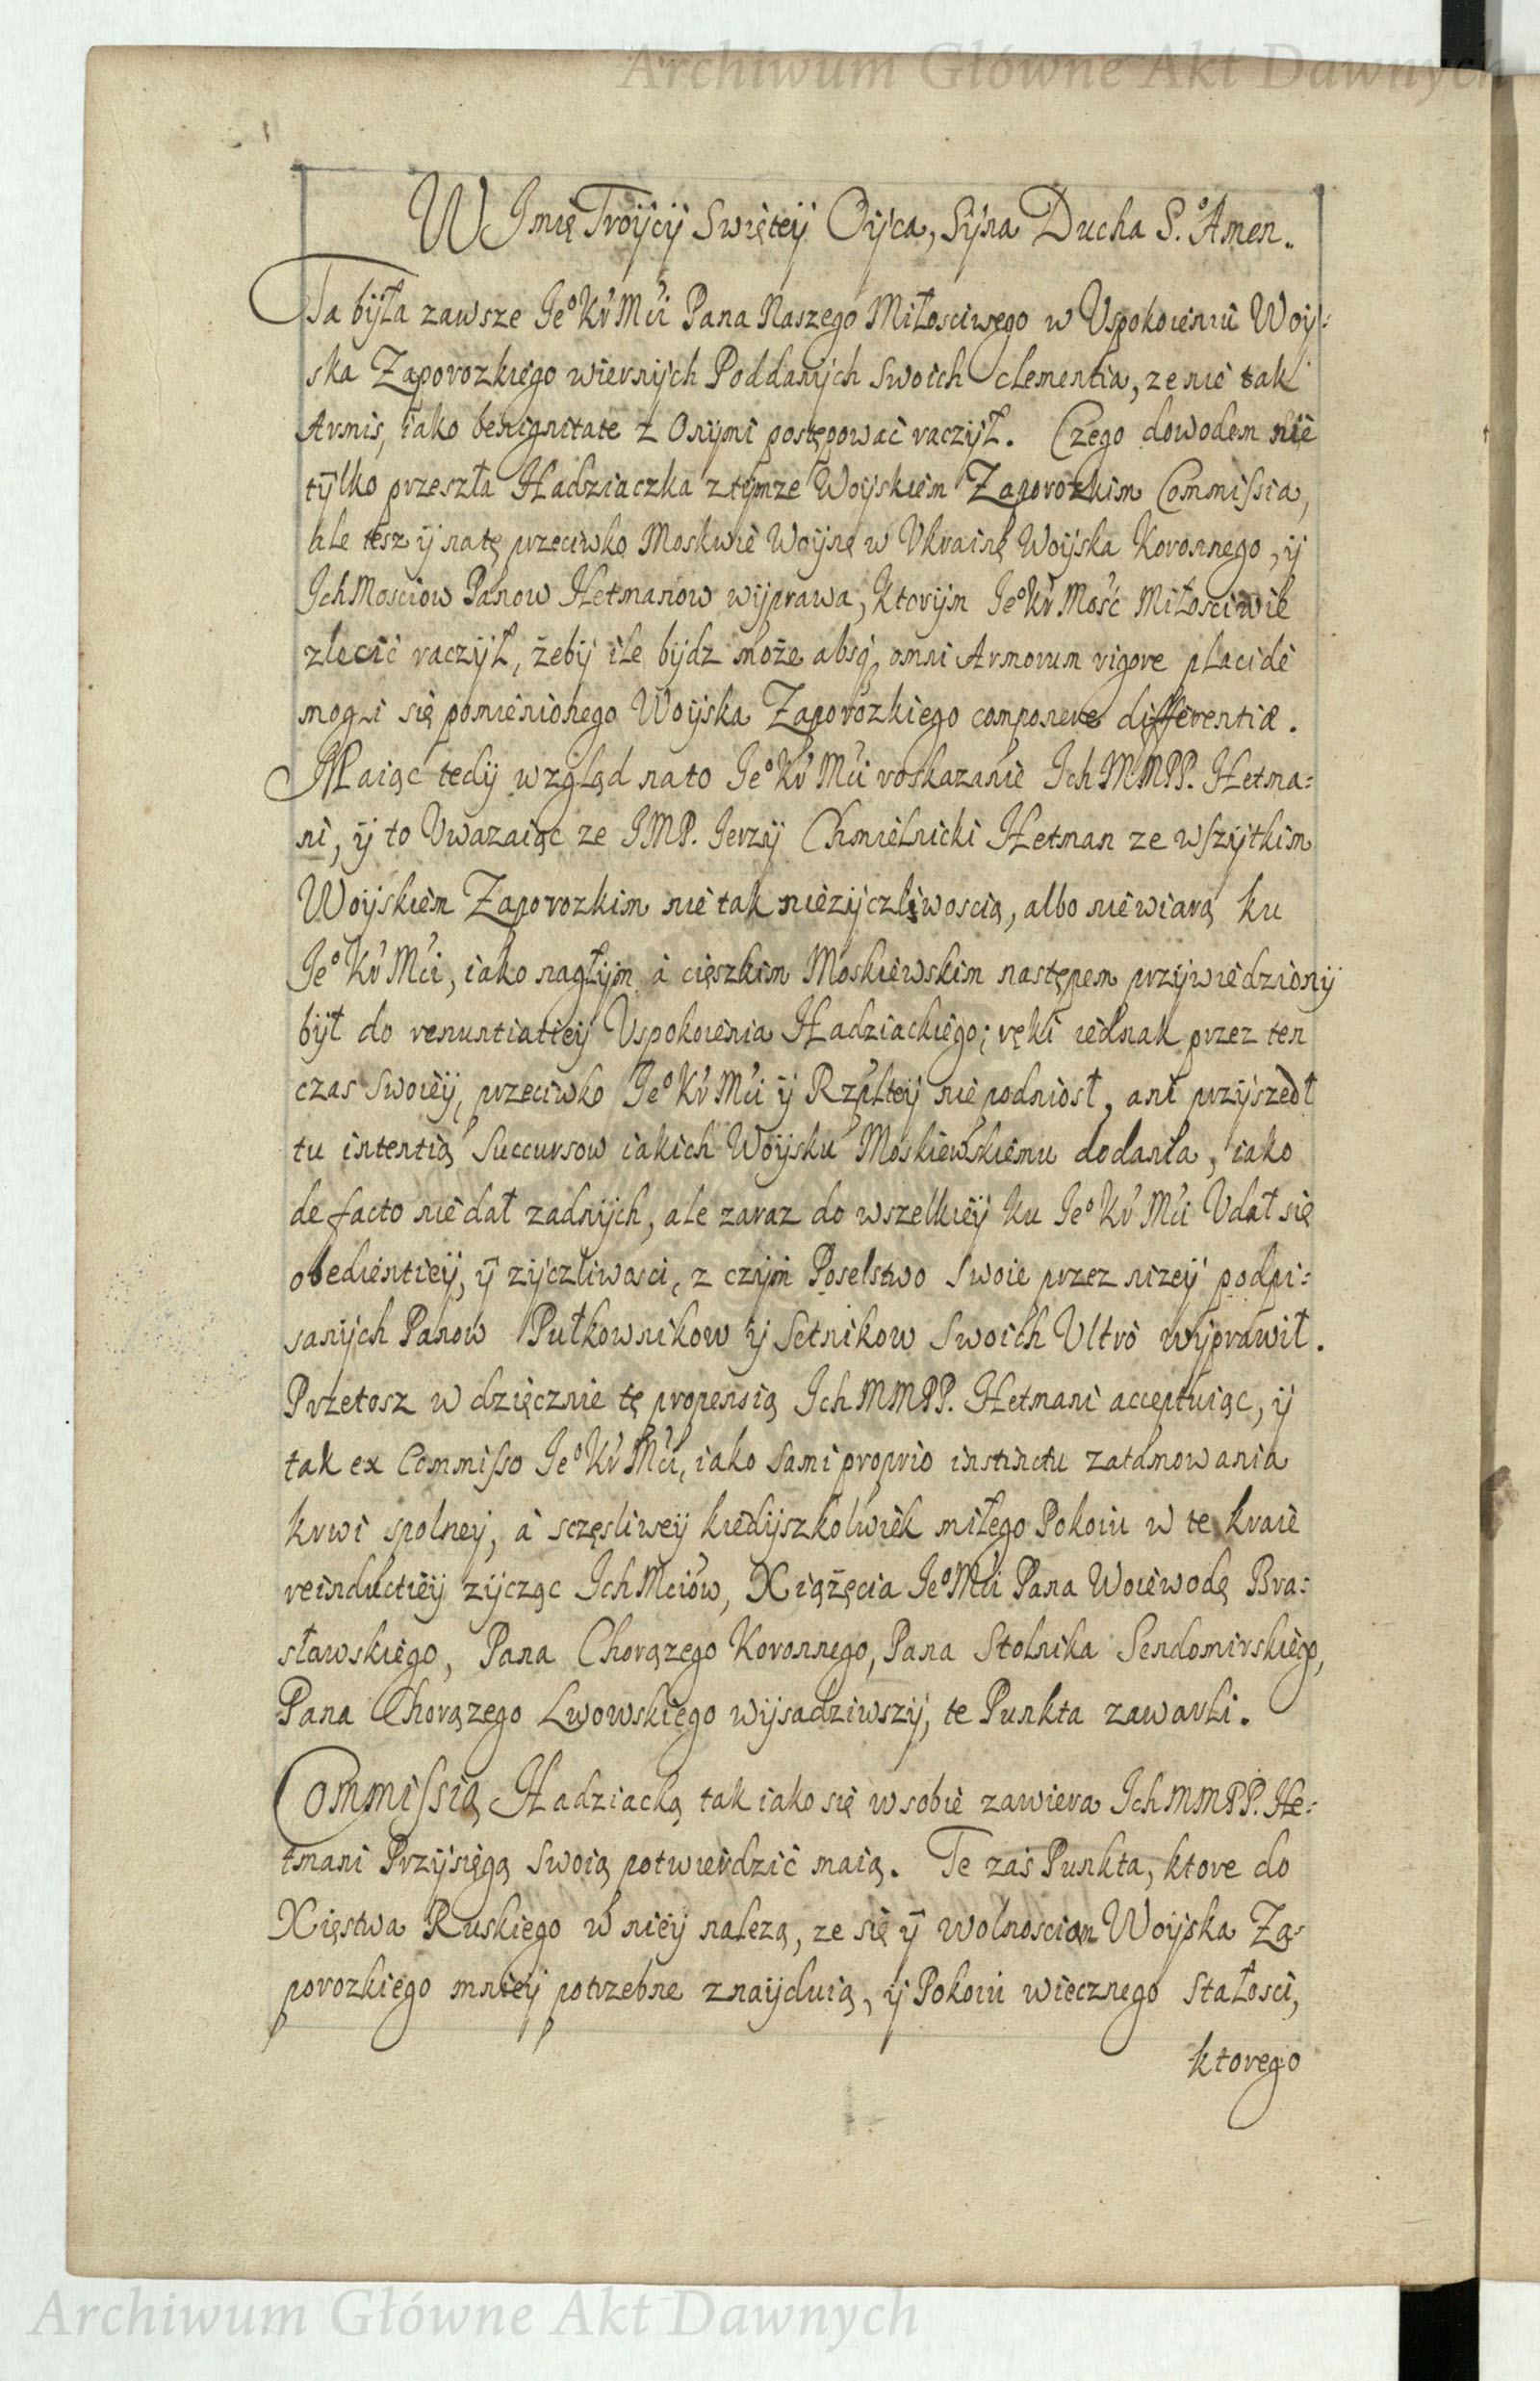 Archiwum Główne Akt Dawnych
W Jmię Troÿcÿ Swięteÿ Oÿca, Sÿna Ducha S.º Amen.
Ta bÿła zawsze Jeº Kr Mći Pana Naszego Miłosciwego w Uspokoieniu Woÿ:
ska Zaporozkiego wiernÿch Poddanÿch swoich clementia, ze nie tak
Armis, iako benignitate z Onÿmi postępować raczÿł. Czego dowodem nie
tÿlko przeszła Hadziaczka z tÿmze Woÿskiem Zaporozkim Commissia,
ale tesz ÿ na tę przeciwko Moskwie Woÿnę w Ukrainę Woÿska Koronnego, ÿ
Ich Mosciow Panow Hetmanow wÿprawa, Ktorÿm Jeº Kr Mość Miłosciwie
zlecić raczÿł, żebÿ ile bÿdz może absq omni Armorum rigore placidè
mogli się pomienionego Woÿska Zaporozkiego componere differentiæ.
Maiąc tedÿ wzgląd na to Jeº Kr Mći roskazanie Ich MMPP. Hetma:
ni, ÿ to Uwazaiąc ze JMP. Jerzÿ Chmielnicki Hetman ze wszÿtkim
Woÿskiem Zaporozkim nie tak nieżÿczliwoscią, albo niewiarą ku
Jeº Kr Mći, iako nagłÿm à cięszkim Moskiewskim następem przÿwiedzionÿ
bÿł do renuntiatieÿ Uspokoienia Hadziackiego; ręki iednak przez ten
czas swoieÿ, przeciwko Jeº Kr Mći ÿ Rzplteÿ nie podniosł, ani przÿszedł
tu intentią Succursow iakich Woÿsku Moskiewskiemu dodania, iako
de facto nie dał zadnÿch, ale zaraz do wszelkieÿ ku Jeº Kr Mći Udał się
obedientieÿ, ÿ zÿczliwosci, z czÿm Poselstwo swoie przez nizeÿ podpi:
sanÿch Panow Pułkownikow ÿ Setnikow swoich Ultro wÿprawił.
Przetosz wdzięcznie tę propensią Ich MMPP. Hetmani acceptuiąc, ÿ
tak ex Commisso Jeº Kr Mći, iako sami proprio instinctu zatamowania
krwi spolney, à sczęsliweÿ kiedÿszkolwiek miłego Pokoiu w te kraie
reinductieÿ zÿcząc Ich Mciow, Xiążęcia Jeº Mći Pana Woiewodę Bra:
sławskiego, Pana Chorązego Koronnego, Pana Stolnika Sendomirskiego,
Pana Chorązego Lwowskiego wÿsadziwszÿ, te Punkta zawarli.
Commissią Hadziacką tak iako się w sobie zawiera Ich MMPP. He:
tmani Przÿsięgą swoią potwierdzić maią. Te zaś Punkta, ktore do
Xięstwa Ruskiego w nieÿ nalezą, ze się ÿ wolnosciom Woÿska Za:
porozkiego mnieÿ potrzebne znaÿduią, ÿ Pokoiu wiecznego stałosci,
ktorego
Archiwum Główne Akt Dawnych